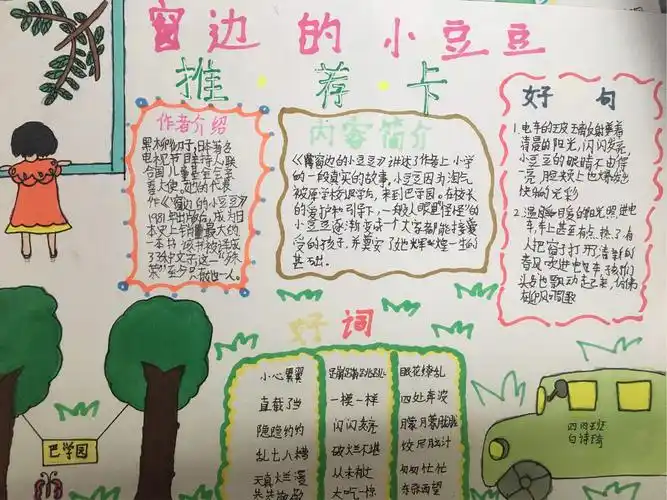 窗边的小豆豆
推·荐·卡
作者介绍
黑柳彻子,日本著名
电视节目主持人,联
合国儿童基金会亲
善大使。她的代表
作《窗边的小豆豆》
1981年出版后,成为日
本史上销量最大的
一本书,该书被译成
33种文字,这一“殊
荣”至少只有她一人。
内容简介
《窗边的小豆豆》讲述了作者上小学
的一段真实的故事,小豆豆因为淘气
被原学校退学后,来到巴学园。在校长
的爱护和引导下,一般人眼里“怪怪”的
小豆豆逐渐变成一个大家都能接受
的孩子,并奠定了她辉煌一生的
基础。
好句
1.电车的玻璃反射着
清晨的阳光,闪闪发亮,
小豆豆的眼睛不由得一
亮,脸颊上也
快乐的光彩
2.
车,车上甚至有点热了,有
人把窗子打开,清新的
春风吹进电车,孩们
头发也飘动起来,仿佛
在迎风唱歌
好词
小心翼翼
直截了当
隐隐约约
乱七八糟
天真烂漫
蹦蹦跳跳
一模一样
闪闪发亮
破烂不堪
从未有过
大吃一惊
眼花缭乱
四处奔波
朦朦胧胧
绞尽脑汁
匆匆忙忙
东张西望
巴学园
四四班